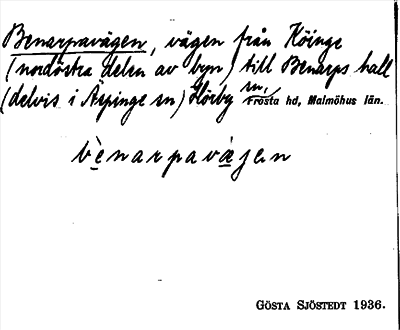 Benarpavägen, vägen från Köinge
(nordöstra delen av byn) till Benarps hall
(delvis i Äspinge sn) Hörby sn, Frosta hd, Malmöhus län.
bènarpavæ̀gen
GÖSTA SJÖSTEDT 1936.